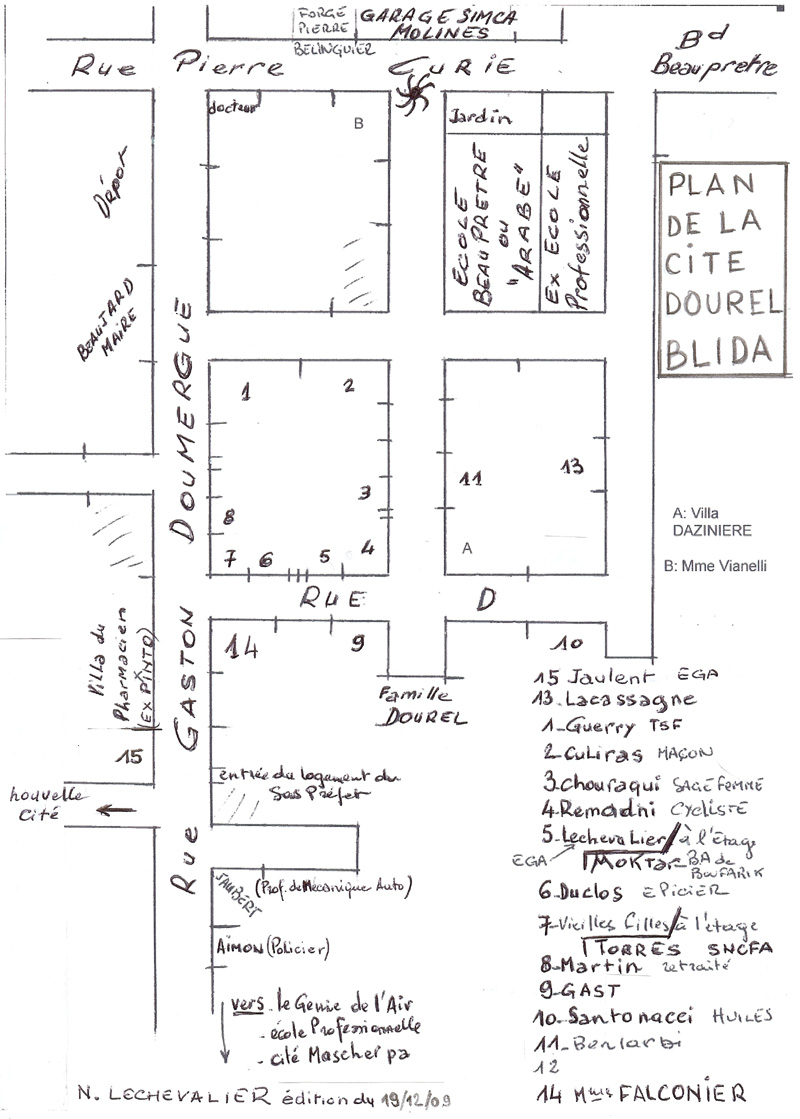 FORGE
PIERRE
BELINGUIER
GARAGE SIMCA
MOLINES
Rue Pierre CURIE
Bd
Beauprêtre
docteur
B
Jardin
ECOLE
BEAUPRETRE
OU
"ARABE"
Ex ECOLE
Professionnelle
PLAN
DE LA
CITE
DOUREL
BLIDA
BEAUJARD
MAIRE
Rue GASTON DOUMERGUE
1
2
3
4
5
6
7
8
11
13
A
A: Villa
DAZINIERE
B: Mme Vianelli
RUE D
14
9
10
Famille
DOUREL
Villa du
Pharmacien
(EX PINTO)
15
nouvelle
cité
entrée du logement du
Sous Préfet
JAUBERT
(Prof. de Mécanique Auto)
AÏMON (Policier)
vers le Génie de l'Air
- école Professionnelle
- cité Mascherpa
15 Jaulent EGA
13. Lacassagne
1-Guerry TSF
2 Culiras MAÇON
3. Chouraqui SAGE FEMME
4. Remadni CYCLISTE
5. Lechevalier/à l'étage
EGA
MOKTAR BA de
BOUFARIK
6. Duclos EPICIER
7-Vieilles filles/à l'étage
TORRES SNCFA
8-Martin retraité
9-GAST
10. Santonacci HUILES
11-Benlarbi
12
14 Mme FALCONIER
N. LECHEVALIER édition du 19/12/09